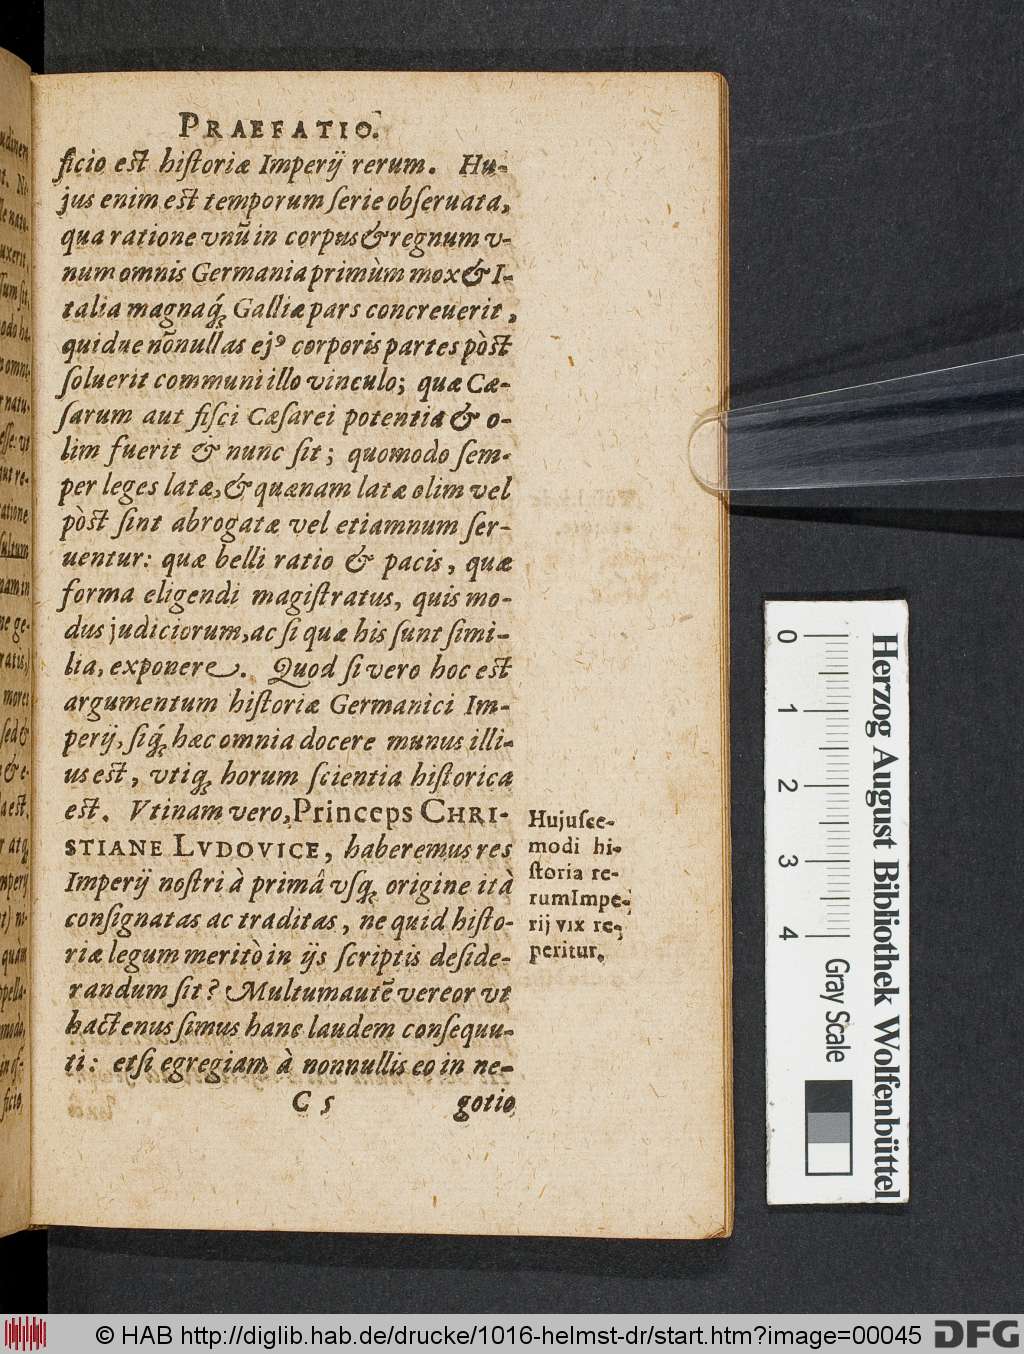 PRAEFATIO.
ficio est historiæ Imperij rerum. Hu-
jus enim est temporum serie obseruata,
qua ratione vnũ in corpus & regnum v-
num omnis Germania primùm mox & I-
talia magnaq́; Galliæ pars concreuerit,
quidue nõnullas ejꝰ corporis partes pòst
soluerit communi illo vinculo; quæ Cæ-
sarum aut fisci Cæsarei potentia & o-
lim fuerit & nunc sit; quomodo sem-
per leges latæ, & quænam latæ olim vel
pòst sint abrogatæ vel etiamnum ser-
uentur: quæ belli ratio & pacis, quæ
forma eligendi magistratus, quis mo-
dus judiciorum, ac si quæ his sunt simi-
lia, exponere. Quod si vero hoc est
argumentum historiæ Germanici Im-
perij, siq́; hæc omnia docere munus illi-
us est, vtiq; horum scientia historica
est. Vtinam vero, Princeps CHRI-
STIANE LVDOVICE, haberemus res
Imperij nostri à primâ vsq; origine ità
consignatas ac traditas, ne quid histo-
riæ legum meritò in ijs scriptis deside-
randum sit? Multum autẽ vereor vt
hactenus simus hanc laudem consequu-
ti: etsi egregiam à nonnullis eo in ne-
C 5 gotio
Hujusce-
modi hi-
storia re-
rum Impe-
rij vix re-
peritur.
0 1 2 3 4
Gray Scale
Herzog August Bibliothek Wolfenbüttel
© HAB http://diglib.hab.de/drucke/1016-helmst-dr/start.htm?image=00045
DFG